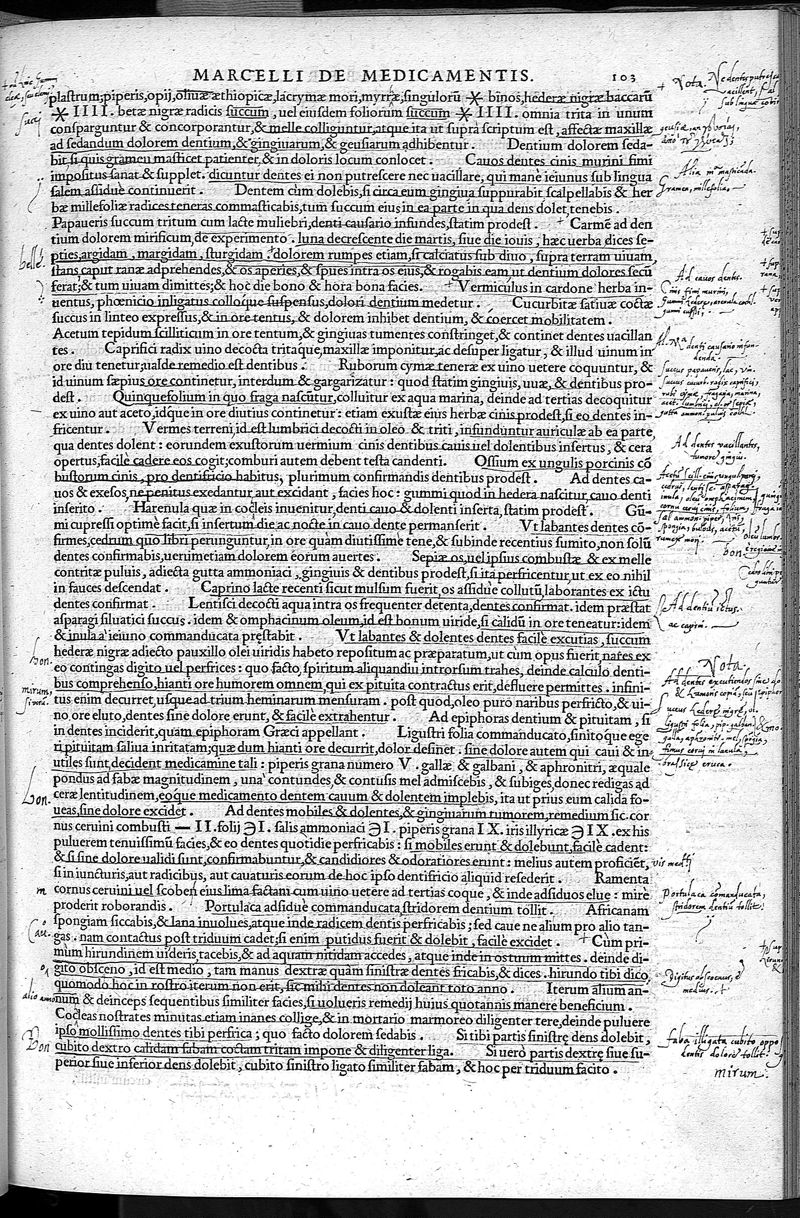 MARCELLI DE MEDICAMENTIS. 103
plastrum; piperis, opij, oliuæ æthiopicæ, lacrymæ mori, myrræ, singulorū ⚹ binos, hederæ nigræ baccarū
⚹ IIII. betæ nigræ radicis succum, uel eiusdem foliorum succum ⚹ IIII. omnia trita in unum
consparguntur & concorporantur, & melle colliguntur, atque ita ut suprà scriptum est, affectæ maxillæ
ad sedandum dolorem dentium, & gingiuarum, & geusiarum adhibentur. Dentium dolorem seda-
bit si quis gramen masticet patienter, & in doloris locum conlocet. Cauos dentes cinis murini fimi
impositus sanat & supplet. dicuntur dentes ei non putrescere nec uacillare, qui manè ieiunus sub lingua
salem assiduè continuerit. Dentem cùm dolebis, si circa eum gingiua suppurabit scalpellabis & her
bæ millefoliæ radices teneras commasticabis, tum succum eius in ea parte in qua dens dolet, tenebis.
Papaueris succum tritum cum lacte muliebri, denti causario infundes, statim prodest. + Carmē ad den
tium dolorem mirificum, de experimento. luna decrescente die martis, siue die iouis; hæc uerba dices se-
pties, argidam, margidam, sturgidam. dolorem rumpes etiam, si calciatus sub diuo, supra terram uiuam,
stans caput ranæ adprehendes, & os aperies, & spues intra os eius, & rogabis eam, ut dentium dolores secū
ferat; & tum uiuam dimittes; & hoc die bono & hora bona facies. + Vermiculus in cardone herba in-
uentus, phœnicio inligatus colloque suspensus, dolori dentium medetur. Cucurbitæ satiuæ coctæ
succus in linteo expressus, & in ore tentus, & dolorem inhibet dentium, & coercet mobilitatem.
Acetum tepidum scilliticum in ore tentum, & gingiuas tumentes constringet, & continet dentes uacillan
tes. Caprifici radix uino decocta tritaque, maxillæ imponitur, ac desuper ligatur, & illud uinum in
ore diu tenetur; ualde remedio est dentibus. Ruborum cymæ teneræ ex uino uetere coquuntur, &
id uinum sæpius ore continetur, interdum & gargarizatur: quod statim gingiuis, uuæ, & dentibus pro-
dest. Quinquefolium in quo fraga nascūtur, colluitur ex aqua marina, deinde ad tertias decoquitur
ex uino aut aceto, idque in ore diutius continetur: etiam exustæ eius herbæ cinis prodest, si eo dentes in-
fricentur. Vermes terreni, id est lumbrici decocti in oleo & triti, infunduntur auriculæ ab ea parte,
qua dentes dolent: eorundem exustorum uermium cinis dentibus cauis uel dolentibus insertus, & cera
opertus, facilè cadere eos cogit; comburi autem debent testa candenti. Ossium ex ungulis porcinis cō
bustorum cinis, pro dentifricio habitus, plurimum confirmandis dentibus prodest. Ad dentes ca-
uos & exesos, ne penitus exedantur, aut excidant, facies hoc: gummi quod in hedera nascitur, cauo denti
inserito. Harenula quæ in cocleis inuenitur, denti cauo & dolenti inserta, statim prodest. Gū-
mi cupressi optimè facit, si insertum die ac nocte in cauo dente permanserit. Vt labantes dentes cō-
firmes, cedrum quo libri perunguntur, in ore quàm diutissime tene, & subinde recentius sumito, non solū
dentes confirmabis, uerumetiam dolorem eorum auertes. Sepiæ os, uel ipsius combustæ & ex melle
contritæ puluis, adiecta gutta ammoniaci, gingiuis & dentibus prodest, si ita perfricentur, ut ex eo nihil
in fauces descendat. Caprino lacte recenti sicut mulsum fuerit, os assiduè collutū, laborantes ex ictu
dentes confirmat. Lentisci decocti aqua intra os frequenter detenta, dentes confirmat. idem præstat
asparagi siluatici succus. idem & omphacinum oleum, id est bonum uiride, si calidū in ore teneatur: idem
& inula à ieiuno commanducata prȩstabit. Vt labantes & dolentes dentes facilè excutias, succum
hederæ nigræ adiecto pauxillo olei uiridis habeto repositum ac præparatum, ut cùm opus fuerit, nares ex
eo contingas digito uel perfrices: quo facto, spiritum aliquandiu introrsum trahes, deinde calculo denti-
bus comprehenso, hianti ore humorem omnem, qui ex pituita contractus erit, defluere permittes. infini-
tus enim decurret, usque ad trium heminarum mensuram. post quod, oleo puro naribus perfricto, & ui-
no, ore eluto, dentes sine dolore erunt, & facilè extrahentur. Ad epiphoras dentium & pituitam, si
in dentes inciderit, quam epiphoram Græci appellant. Ligustri folia commanducato, sinitoque ege
ri pituitam saliua inritatam; quæ dum hianti ore decurrit, dolor desinet. sine dolore autem qui caui & in-
utiles sunt, decident medicamine tali: piperis grana numero V. gallæ & galbani, & aphronitri, æquale
pondus ad fabæ magnitudinem, unà contundes, & contusis mel admiscebis, & subiges, donec redigas ad
ceræ lentitudinem, eoque medicamento dentem cauum & dolentem implebis, ita ut prius eum calida fo-
ueas, sine dolore excidet. Ad dentes mobiles & dolentes, & gingiuarum tumorem, remedium sic. cor
nus ceruini combusti — II. folij ℈ I. salis ammoniaci ℈ I. piperis grana IX. iris illyricæ ℈ IX. ex his
puluerem tenuissimū facies, & eo dentes quotidie perfricabis: si mobiles erunt & dolebunt, facilè cadent:
& si sine dolore ualidi sunt, confirmabuntur, & candidiores & odoratiores erunt: melius autem proficiēt,
si in iuncturis, aut radicibus, aut cauaturis eorum de hoc ipso dentifricio aliquid resederit. Ramenta
cornus ceruini uel scobem eius lima factam cum uino uetere ad tertias coque, & inde adsiduos elue: mirè
proderit roborandis. Portulaca adsiduè commanducata, stridorem dentium tollit. Africanam
spongiam siccabis, & lana inuolues, atque inde radicem dentis perfricabis; sed caue ne alium pro alio tan-
gas. nam contactus post triduum cadet; si enim putidus fuerit & dolebit, facilè excidet. + Cùm pri-
mùm hirundinem uideris, tacebis, & ad aquam nitidam accedes, atque inde in os tuum mittes. deinde di-
gito obsceno, id est medio, tam manus dextræ quàm sinistræ dentes fricabis, & dices. hirundo tibi dico,
quomodo hoc in rostro iterum non erit, sic mihi dentes non doleant toto anno. Iterum alium an-
num & deinceps sequentibus similiter facies, si uolueris remedij huius quotannis manere beneficium.
Cocleas nostrates minutas etiam inanes collige, & in mortario marmoreo diligenter tere, deinde puluere
ipso mollissimo dentes tibi perfrica; quo facto dolorem sedabis. Si tibi partis sinistrȩ dens dolebit,
cubito dextro calidam fabam coctam tritam impone & diligenter liga. Si uerò partis dextrȩ siue su-
perior siue inferior dens dolebit, cubito sinistro ligato similiter fabam, & hoc per triduum facito.
succi
belle.
bon.
mirum,
Bon.
Cau.
Bon
Nota. Ne dentes putrescāt
Gramen, millefolium,
Ad cauos dentes.
Ad dentes vacillantes,
bon
Ad dentiū ictus.
Nota.
Portulaca comāducata,
stridorem dentiū tollit.
Digitus obscoenus, ē
medius.
faba illigata cubito oppo
dentis dolorē tollit.
mirum.